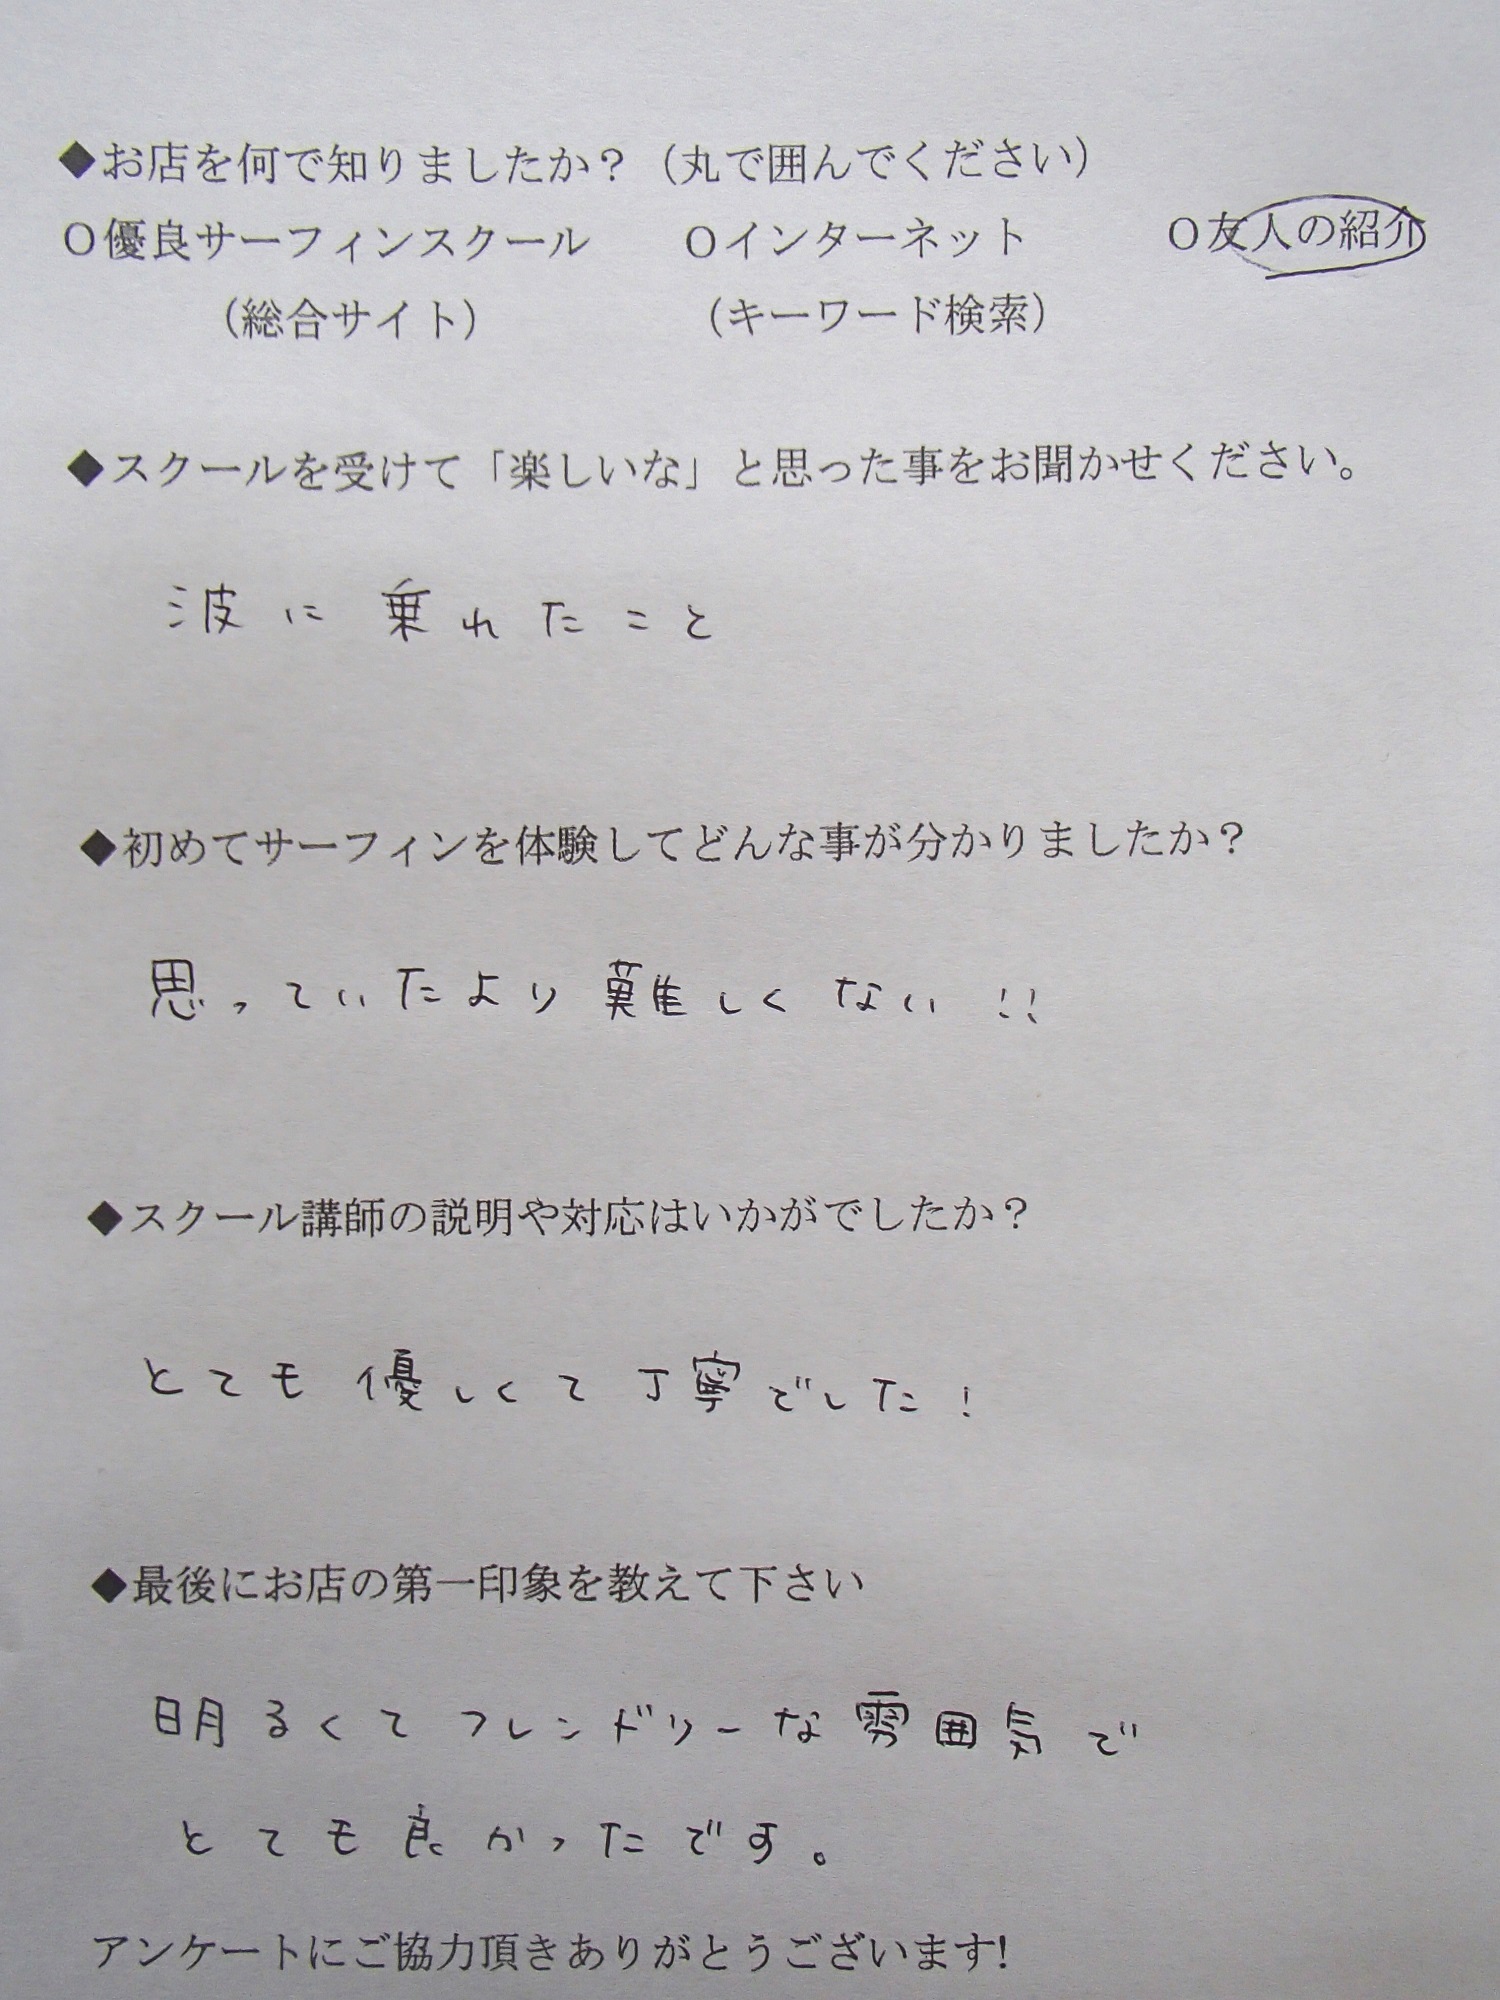 ◆お店を何で知りましたか？（丸で囲んでください）
○優良サーフィンスクール ○インターネット ○友人の紹介
（総合サイト） （キーワード検索）
◆スクールを受けて「楽しいな」と思った事をお聞かせください。
波に乗れたこと
◆初めてサーフィンを体験してどんな事が分かりましたか？
思っていたより難しくない!!
◆スクール講師の説明や対応はいかがでしたか？
とても優しくて丁寧でした!
◆最後にお店の第一印象を教えて下さい
明るくてフレンドリーな雰囲気で
とても良かったです。
アンケートにご協力頂きありがとうございます!